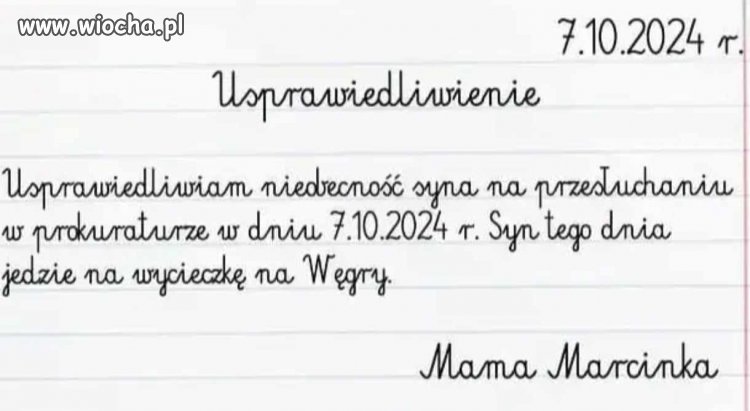 www.wiocha.pl
7.10.2024 r.
Usprawiedliwienie
Usprawiedliwiam nieobecność syna na przesłuchaniu
w prokuraturze w dniu 7.10.2024 r. Syn tego dnia
jedzie na wycieczkę na Węgry.
Mama Marcinka